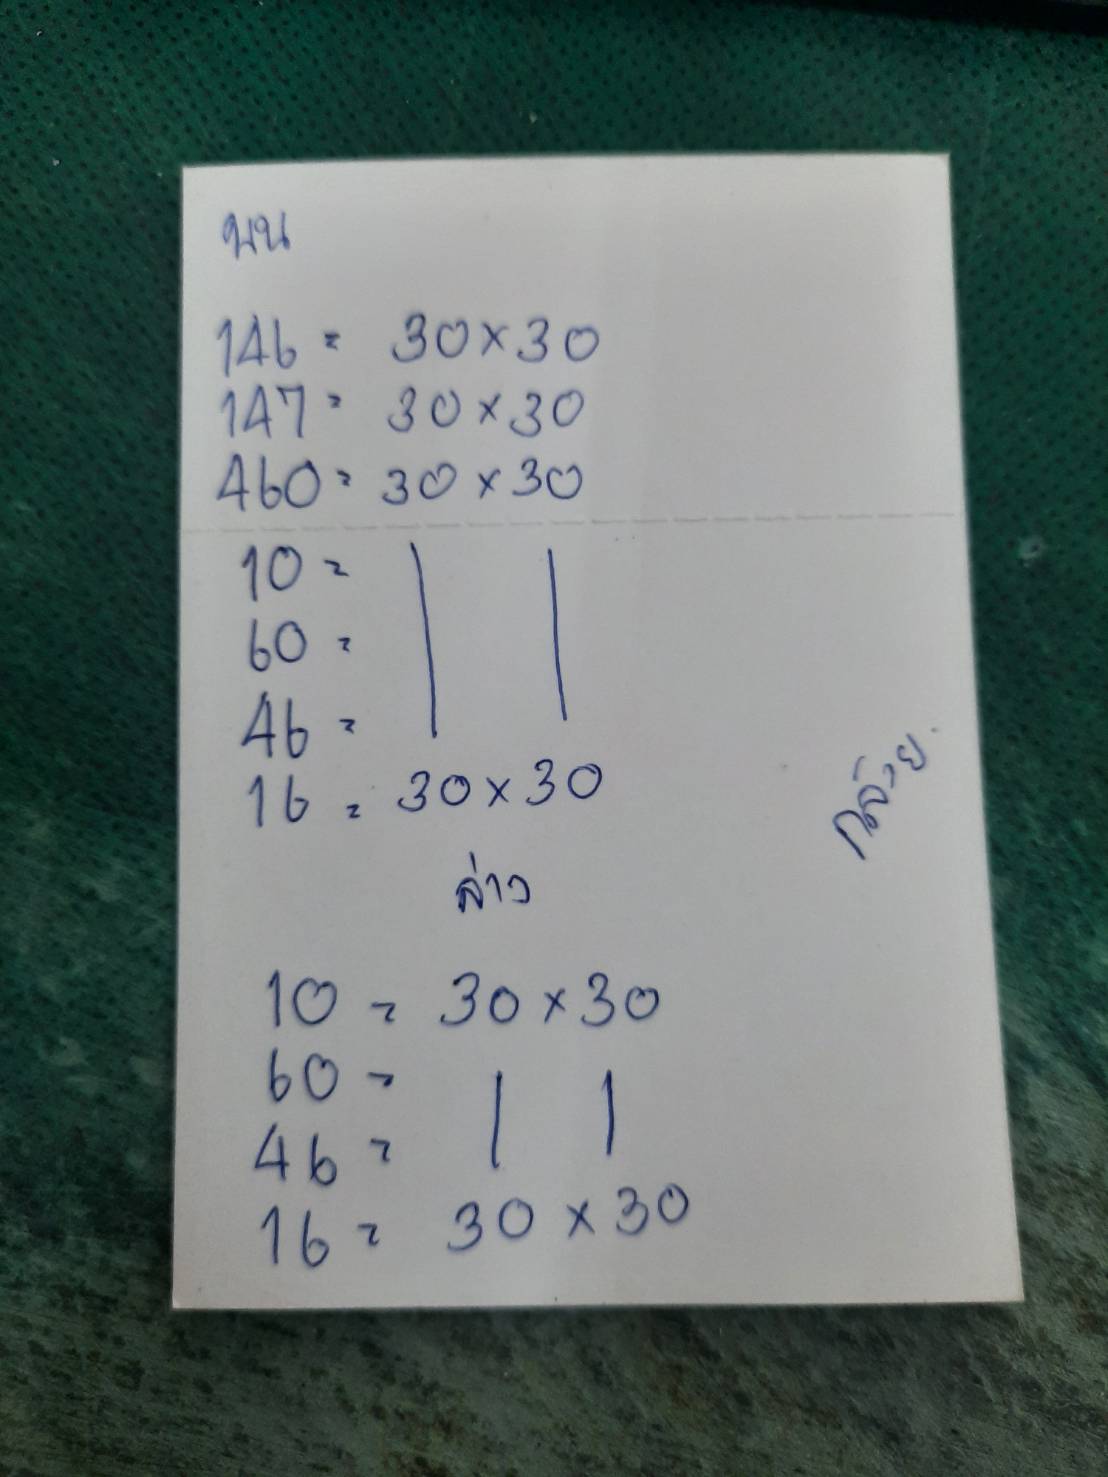 บน
146 = 30×30
147 = 30×30
460 = 30×30
10 = | |
60 =
46 =
16 = 30×30
ล่าง
10 = 30×30
60 = | |
46 =
16 = 30×30
กล้วย.